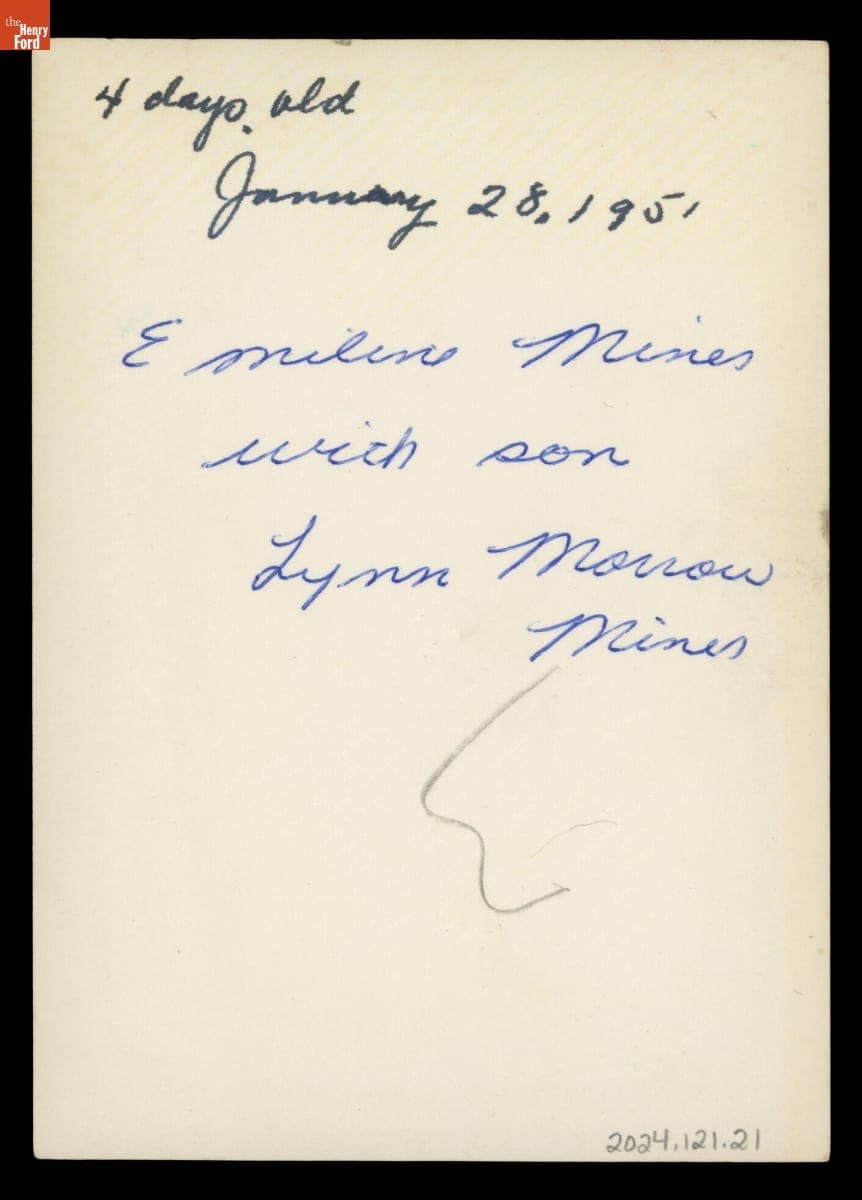 the
Henry
Ford
4 days old
January 28, 1951
Emilene Mines
with son
Lynn Morrow
Mines
2024.121.21